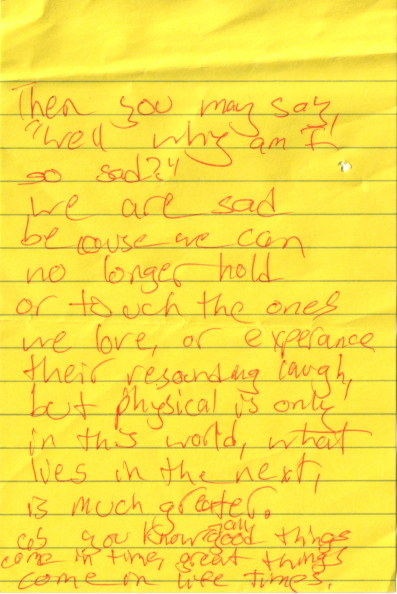 Then you may say,
"well why am I
so sad?"
we are sad
because we can
no longer hold
or touch the ones
we love, or experance
their resounding laugh,
but physical is only
in this world, what
lies in the next,
is much greater.
as you know good things
come in time, great things
come in life times.